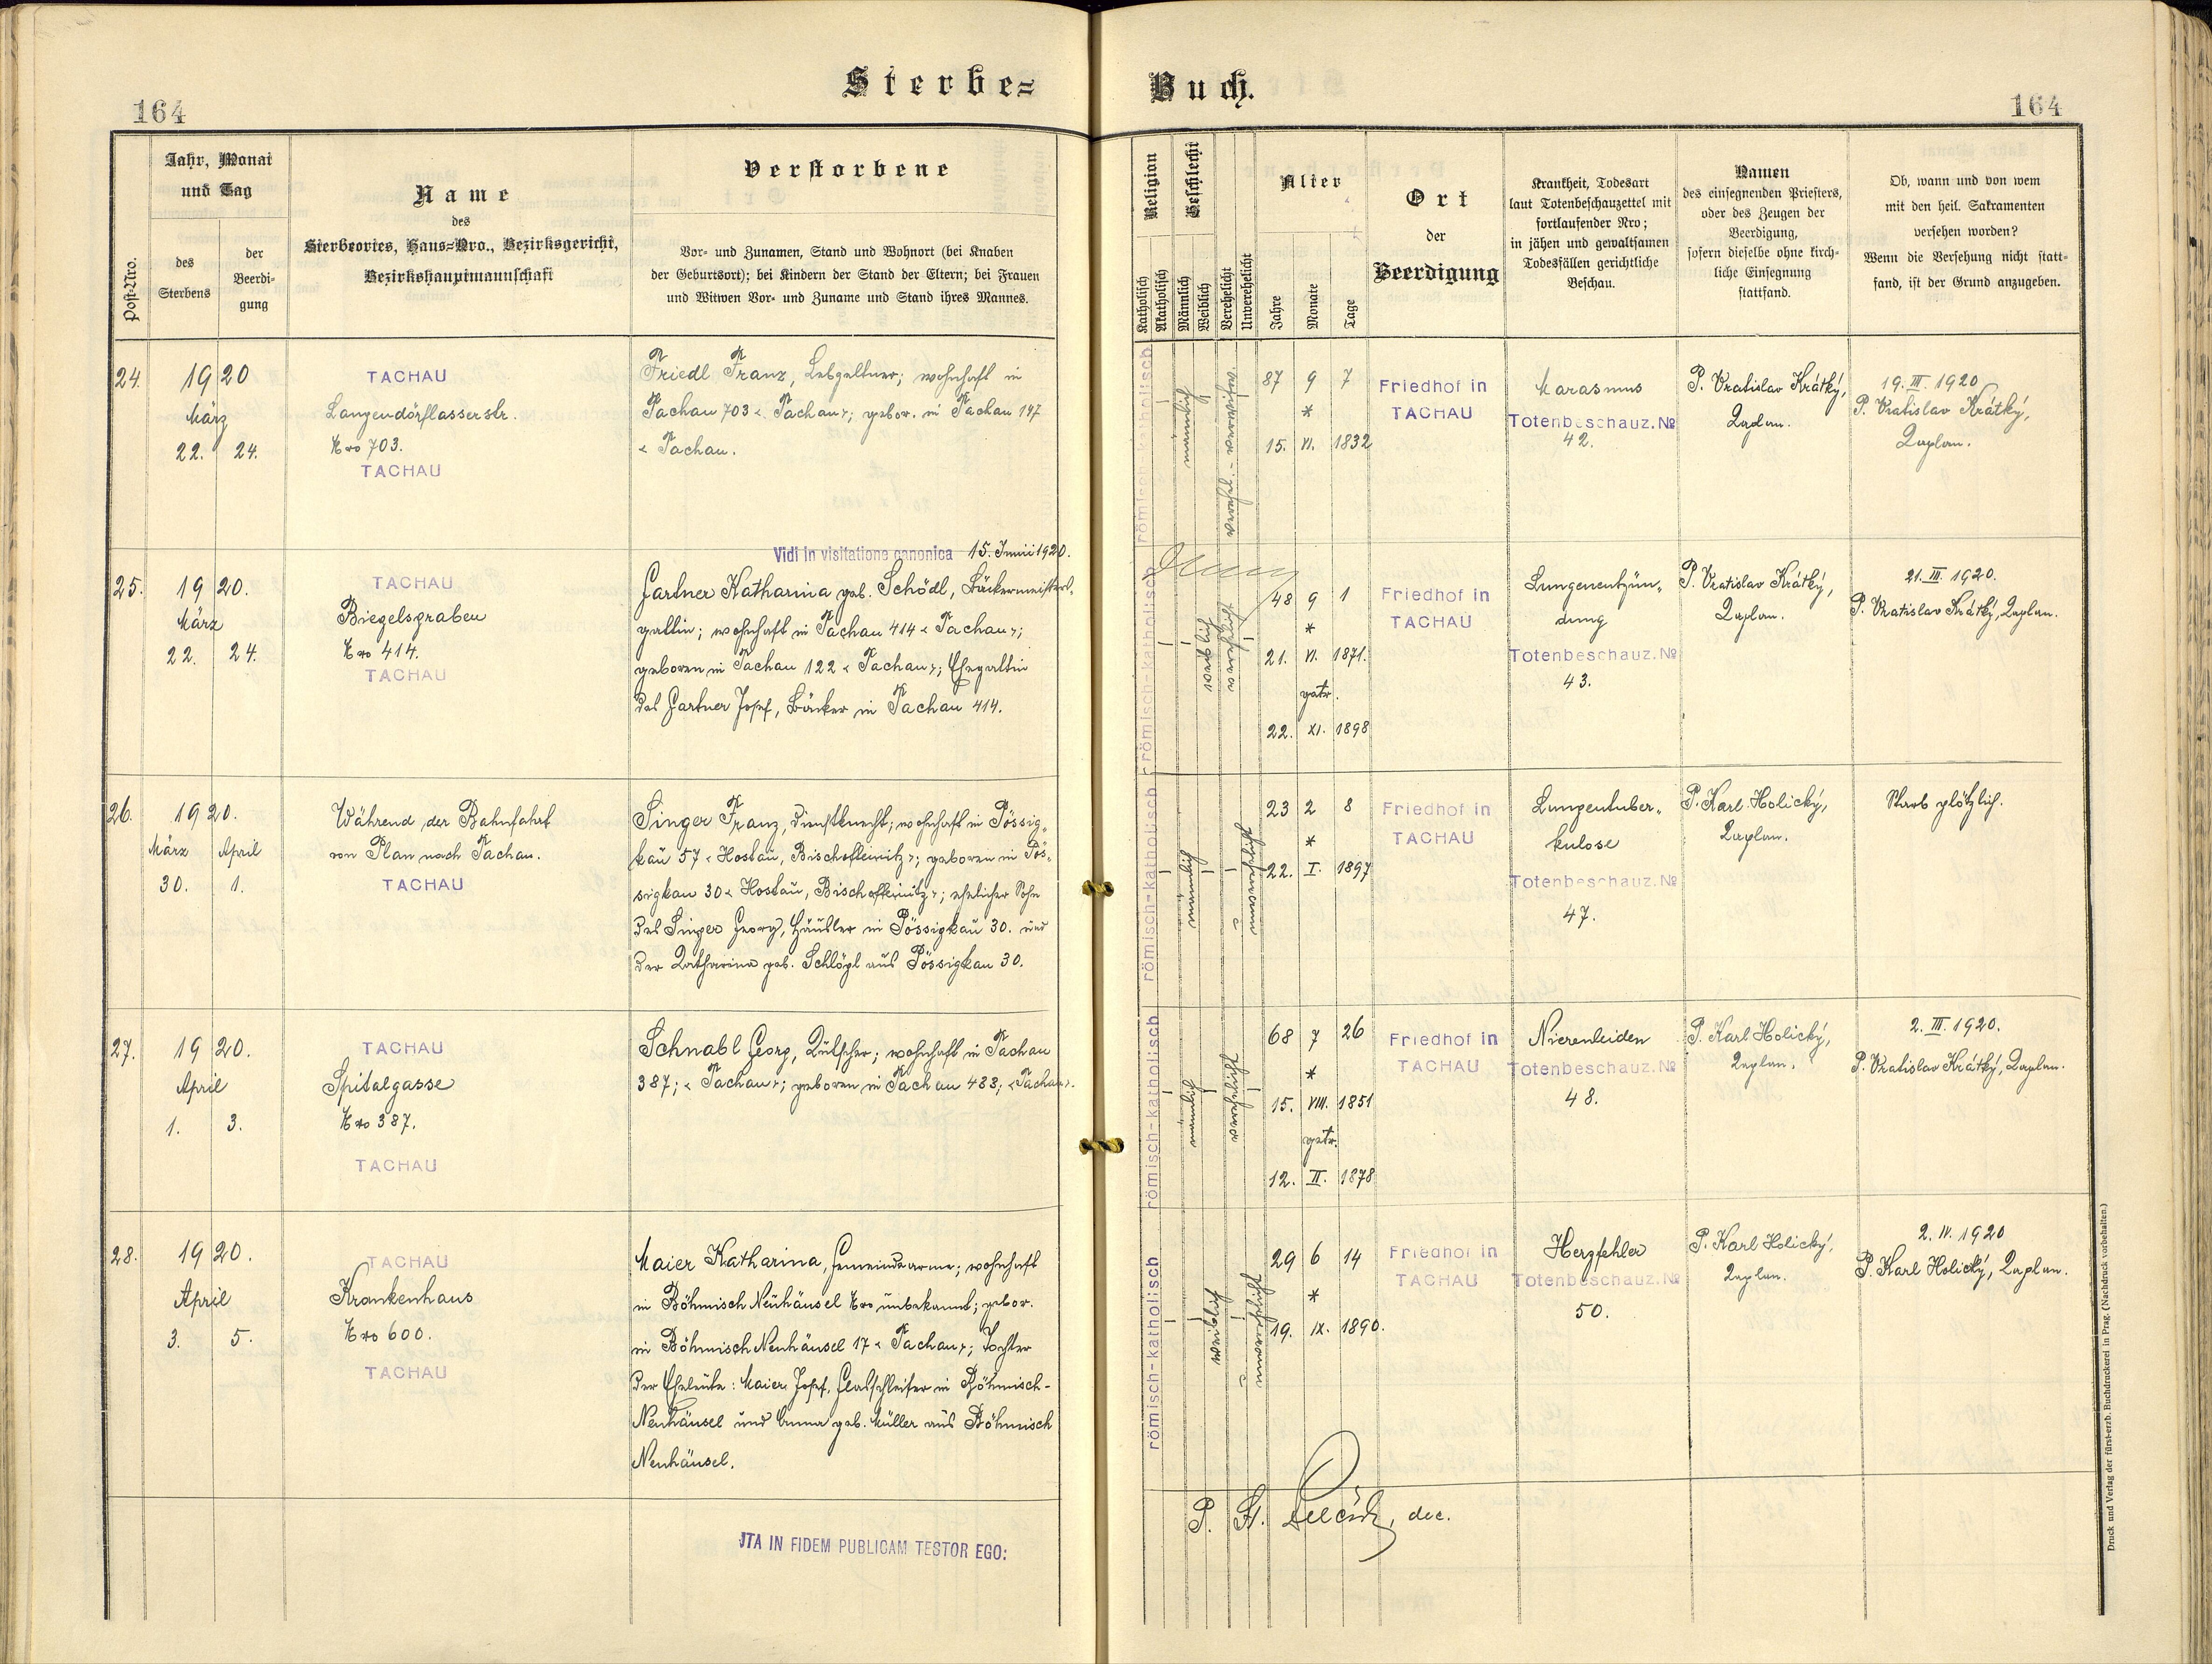 Sterbe=
Buch.
164
164
Post-Nro.
Jahr, Monat
und Tag
des
Sterbens
der
Beerdi-
gung
Name
des
Sterbeortes, Haus=Nro., Bezirksgericht,
Bezirkshauptmannschaft
Verstorbene
Vor- und Zunamen, Stand und Wohnort (bei Knaben
der Geburtsort); bei Kindern der Stand der Eltern; bei Frauen
und Witwen Vor- und Zuname und Stand ihres Mannes.
Religion
Katholisch
Akatholisch
Geschlecht
Männlich
Weiblich
Verehelicht
Unverehelicht
Alter
Jahre
Monate
Tage
Ort
der
Beerdigung
Krankheit, Todesart
laut Totenbeschauzettel mit
fortlaufender Nro;
in jähen und gewaltsamen
Todesfällen gerichtliche
Beschau.
Namen
des einsegnenden Priesters,
oder des Zeugen der
Beerdigung,
sofern dieselbe ohne kirch-
liche Einsegnung
stattfand.
Ob, wann und von wem
mit den heil. Sakramenten
versehen worden?
Wenn die Versehung nicht statt-
fand, ist der Grund anzugeben.
24.
1920
März
22. 24.
TACHAU
Langendörflasserstr.
Nro 703.
TACHAU
Friedl Franz, wohnhaft in
Tachau 703 « Tachau »; gebor. in Tachau 147
« Tachau.
römisch-katholisch
männlich
87 9 7
*
15. VI. 1832
Friedhof in
TACHAU
Marasmus
Totenbeschauz. №
42.
P. Vratislav Krátký,
Kaplan.
19. III. 1920
P. Vratislav Krátký,
Kaplan.
Vidi in visitatione canonica 15. Junii 1920.
25.
1920.
März
22. 24.
TACHAU
Biegelsgraben
Nro 414.
TACHAU
Gartner Katharina geb. Schödl, Bäckermeisters-
gattin; wohnhaft in Tachau 414 « Tachau »;
geboren in Tachau 122 « Tachau »; Ehegattin
des Gartner Josef, Bäcker in Tachau 414.
römisch-katholisch
weiblich
verehelicht
48 9 1
*
21. VI. 1871.
getr.
22. XI. 1898
Friedhof in
TACHAU
Lungenentzün-
dung
Totenbeschauz. №
43.
P. Vratislav Krátký,
Kaplan.
21. III. 1920.
P. Vratislav Krátký, Kaplan.
26.
1920.
März April
30. 1.
Während der Bahnfahrt
von Plan nach Tachau.
TACHAU
Singer Franz, Dienstknecht; wohnhaft in Pössig-
kau 57 « Hostau, Bischofteinitz »; geboren in Pös-
sigkau 30 « Hostau, Bischofteinitz »; ehelicher Sohn
des Singer Georg, Häusler in Pössigkau 30. und
der Katharina geb. Schlögl aus Pössigkau 30.
römisch-katholisch
männlich
unverehelicht
23 2 8
*
22. I. 1897
Friedhof in
TACHAU
Lungentuber-
kulose
Totenbeschauz. №
47.
P. Karl Holický,
Kaplan.
Starb plötzlich.
27.
1920.
April
1. 3.
TACHAU
Spitalgasse
Nro 387.
TACHAU
Schnabl Georg, Kutscher; wohnhaft in Tachau
387; « Tachau »; geboren in Tachau 483; « Tachau ».
römisch-katholisch
männlich
verehelicht
68 7 26
*
15. VIII. 1851
getr.
12. II. 1878
Friedhof in
TACHAU
Nierenleiden
Totenbeschauz. №
48.
P. Karl Holický,
Kaplan.
2. III. 1920.
P. Vratislav Krátký, Kaplan.
28.
1920.
April
3. 5.
TACHAU
Krankenhaus
Nro 600.
TACHAU
Maier Katharina, Gemeindearme; wohnhaft
in Böhmisch Neuhäusel Nro unbekannt; gebor.
in Böhmisch Neuhäusel 17 « Tachau »; Tochter
der Eheleute: Maier Josef, Glasschleifer in Böhmisch-
Neuhäusel und Anna geb. Müller aus Böhmisch
Neuhäusel.
römisch-katholisch
weiblich
unverehelicht
29 6 14
*
19. IX. 1890.
Friedhof in
TACHAU
Herzfehler
Totenbeschauz. №
50.
P. Karl Holický,
Kaplan.
2. IV. 1920
P. Karl Holický, Kaplan.
JTA IN FIDEM PUBLICAM TESTOR EGO:
P. dec.
Druck und Verlag der fürst-erzb. Buchdruckerei in Prag. (Nachdruck vorbehalten.)